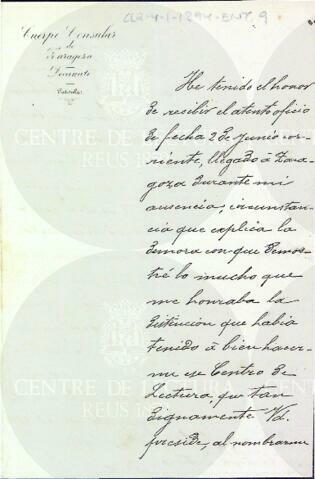 CL2-4-1-1894-ENT, 9
Cuerpo Consular
de
Zaragoza
Decanato
He tenido el honor
de recibir el atento oficio
de fecha 2 de junio cor-
riente, llegado a Zara-
goza durante mi
ausencia; circunstan-
cia que explica la
demora con que demos-
tré lo mucho que
me honraba la
distincion que habia
tenido á bien hacer-
me ese Centro de
Lectura, que tan
dignamente Vd.
preside, al nombrarme
CENTRE DE LECTURA
REUS
CENTRE DE LECTURA
REUS